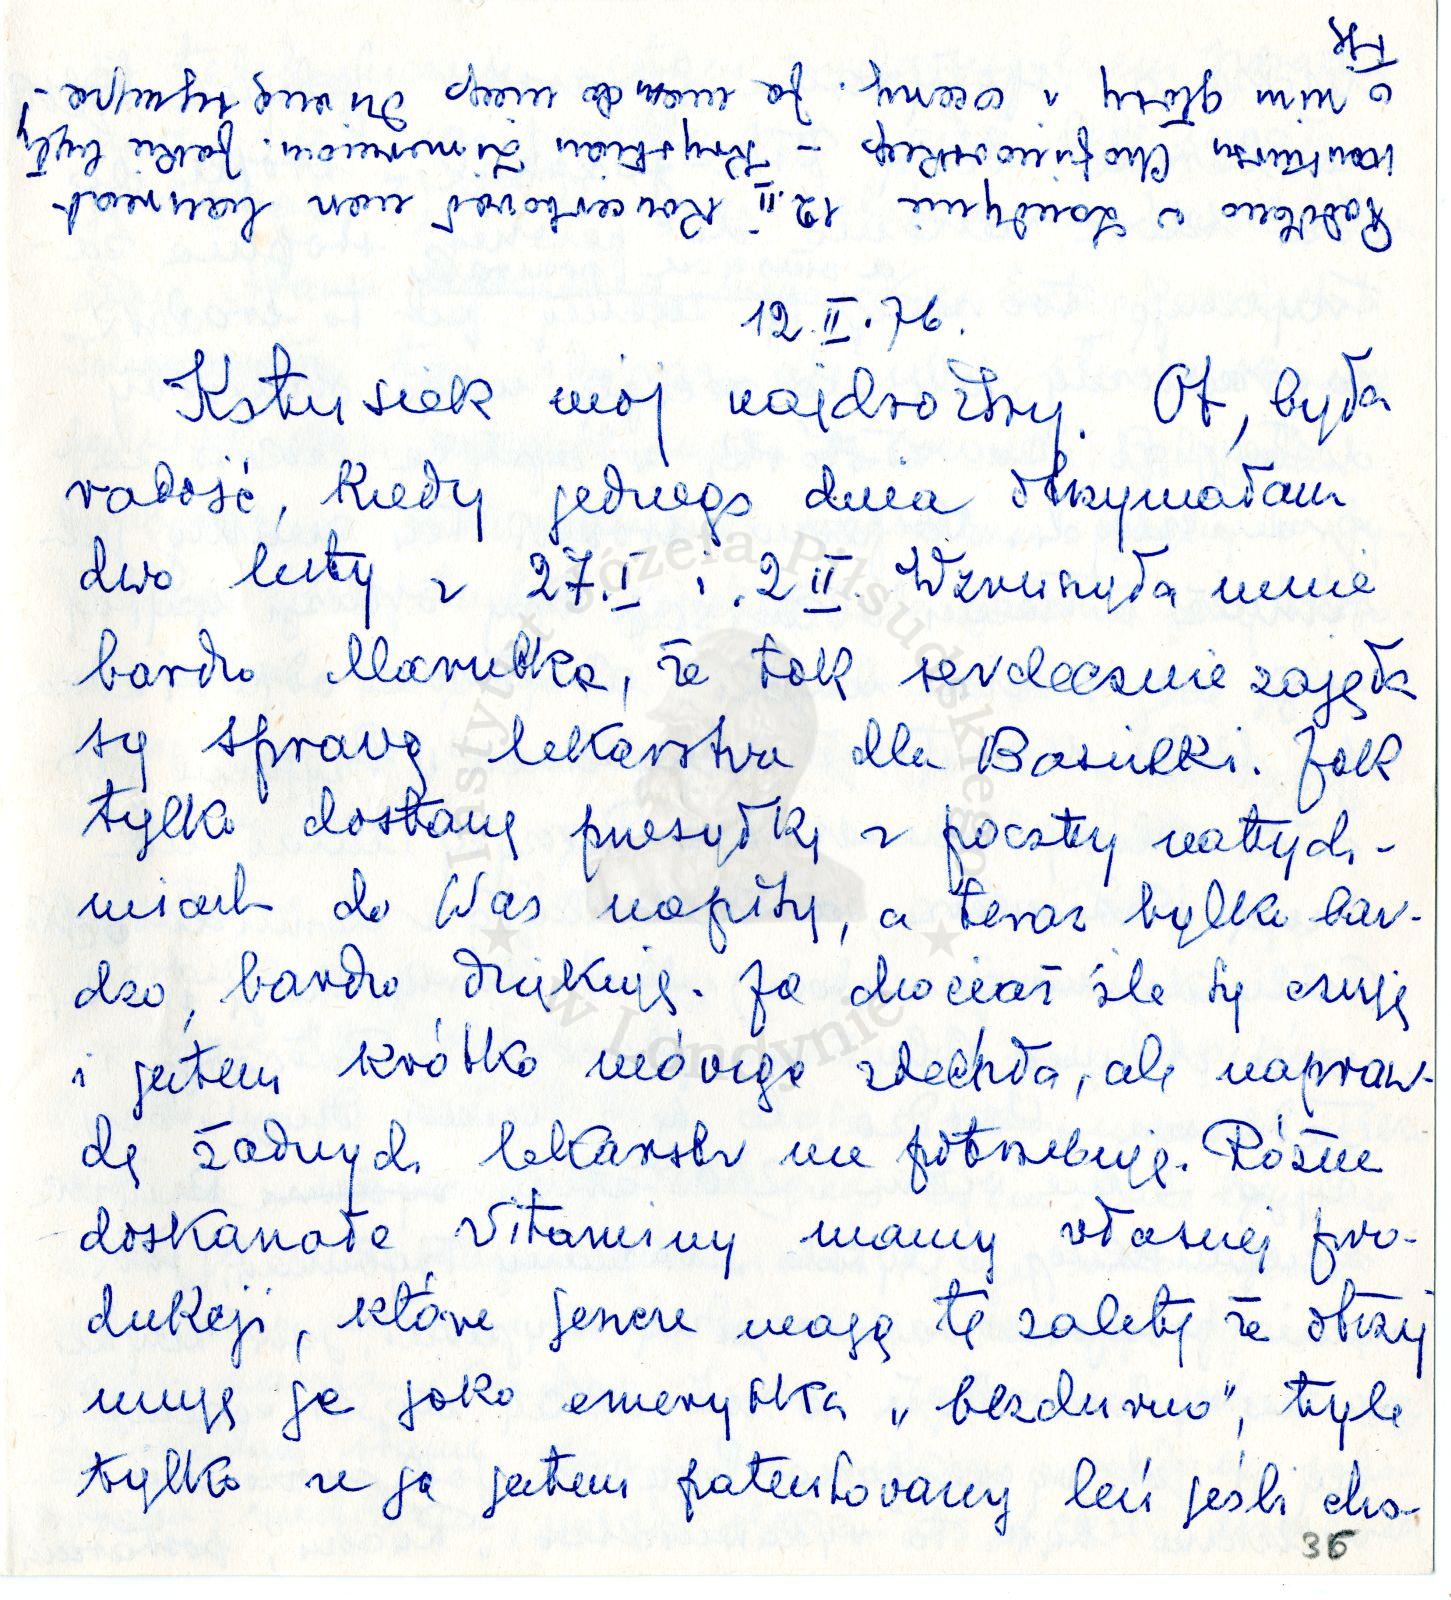 Podobno w Londynie 12.II. koncertował nasz laureat
konkursu Chopinowskiego – Krystian Zimerman. Jakie były
o nim głosy i oceny. Ja mam do niego
12.II.76.
Kotusiek mój najdroższy. Ot, była
radość, kiedy jednego dnia otrzymałam
dwa listy z 27.I i 2 II. Wzruszyła mnie
bardzo Marutka, że tak serdecznie zajęła
się sprawą lekarstwa dla Basiulki. Jak
tylko dostanę przesyłkę z poczty natych-
miast do Was napiszę, a teraz tylko bar-
dzo, bardzo dziękuję. Ja chociaż źle się czuję
i jestem krótko mówiąc zdechła, ale napraw-
dę żadnych lekarstw nie potrzebuję. Różne
doskonałe vitaminy mamy własnej pro-
dukcji, które jeszcze mają tę zaletę że otrzy
muję je jako emerytka „bezdurno", tyle
tylko że ja jestem patentowany leń jeśli cho-
36
Instytut Józefa Piłsudskiego
w Londynie